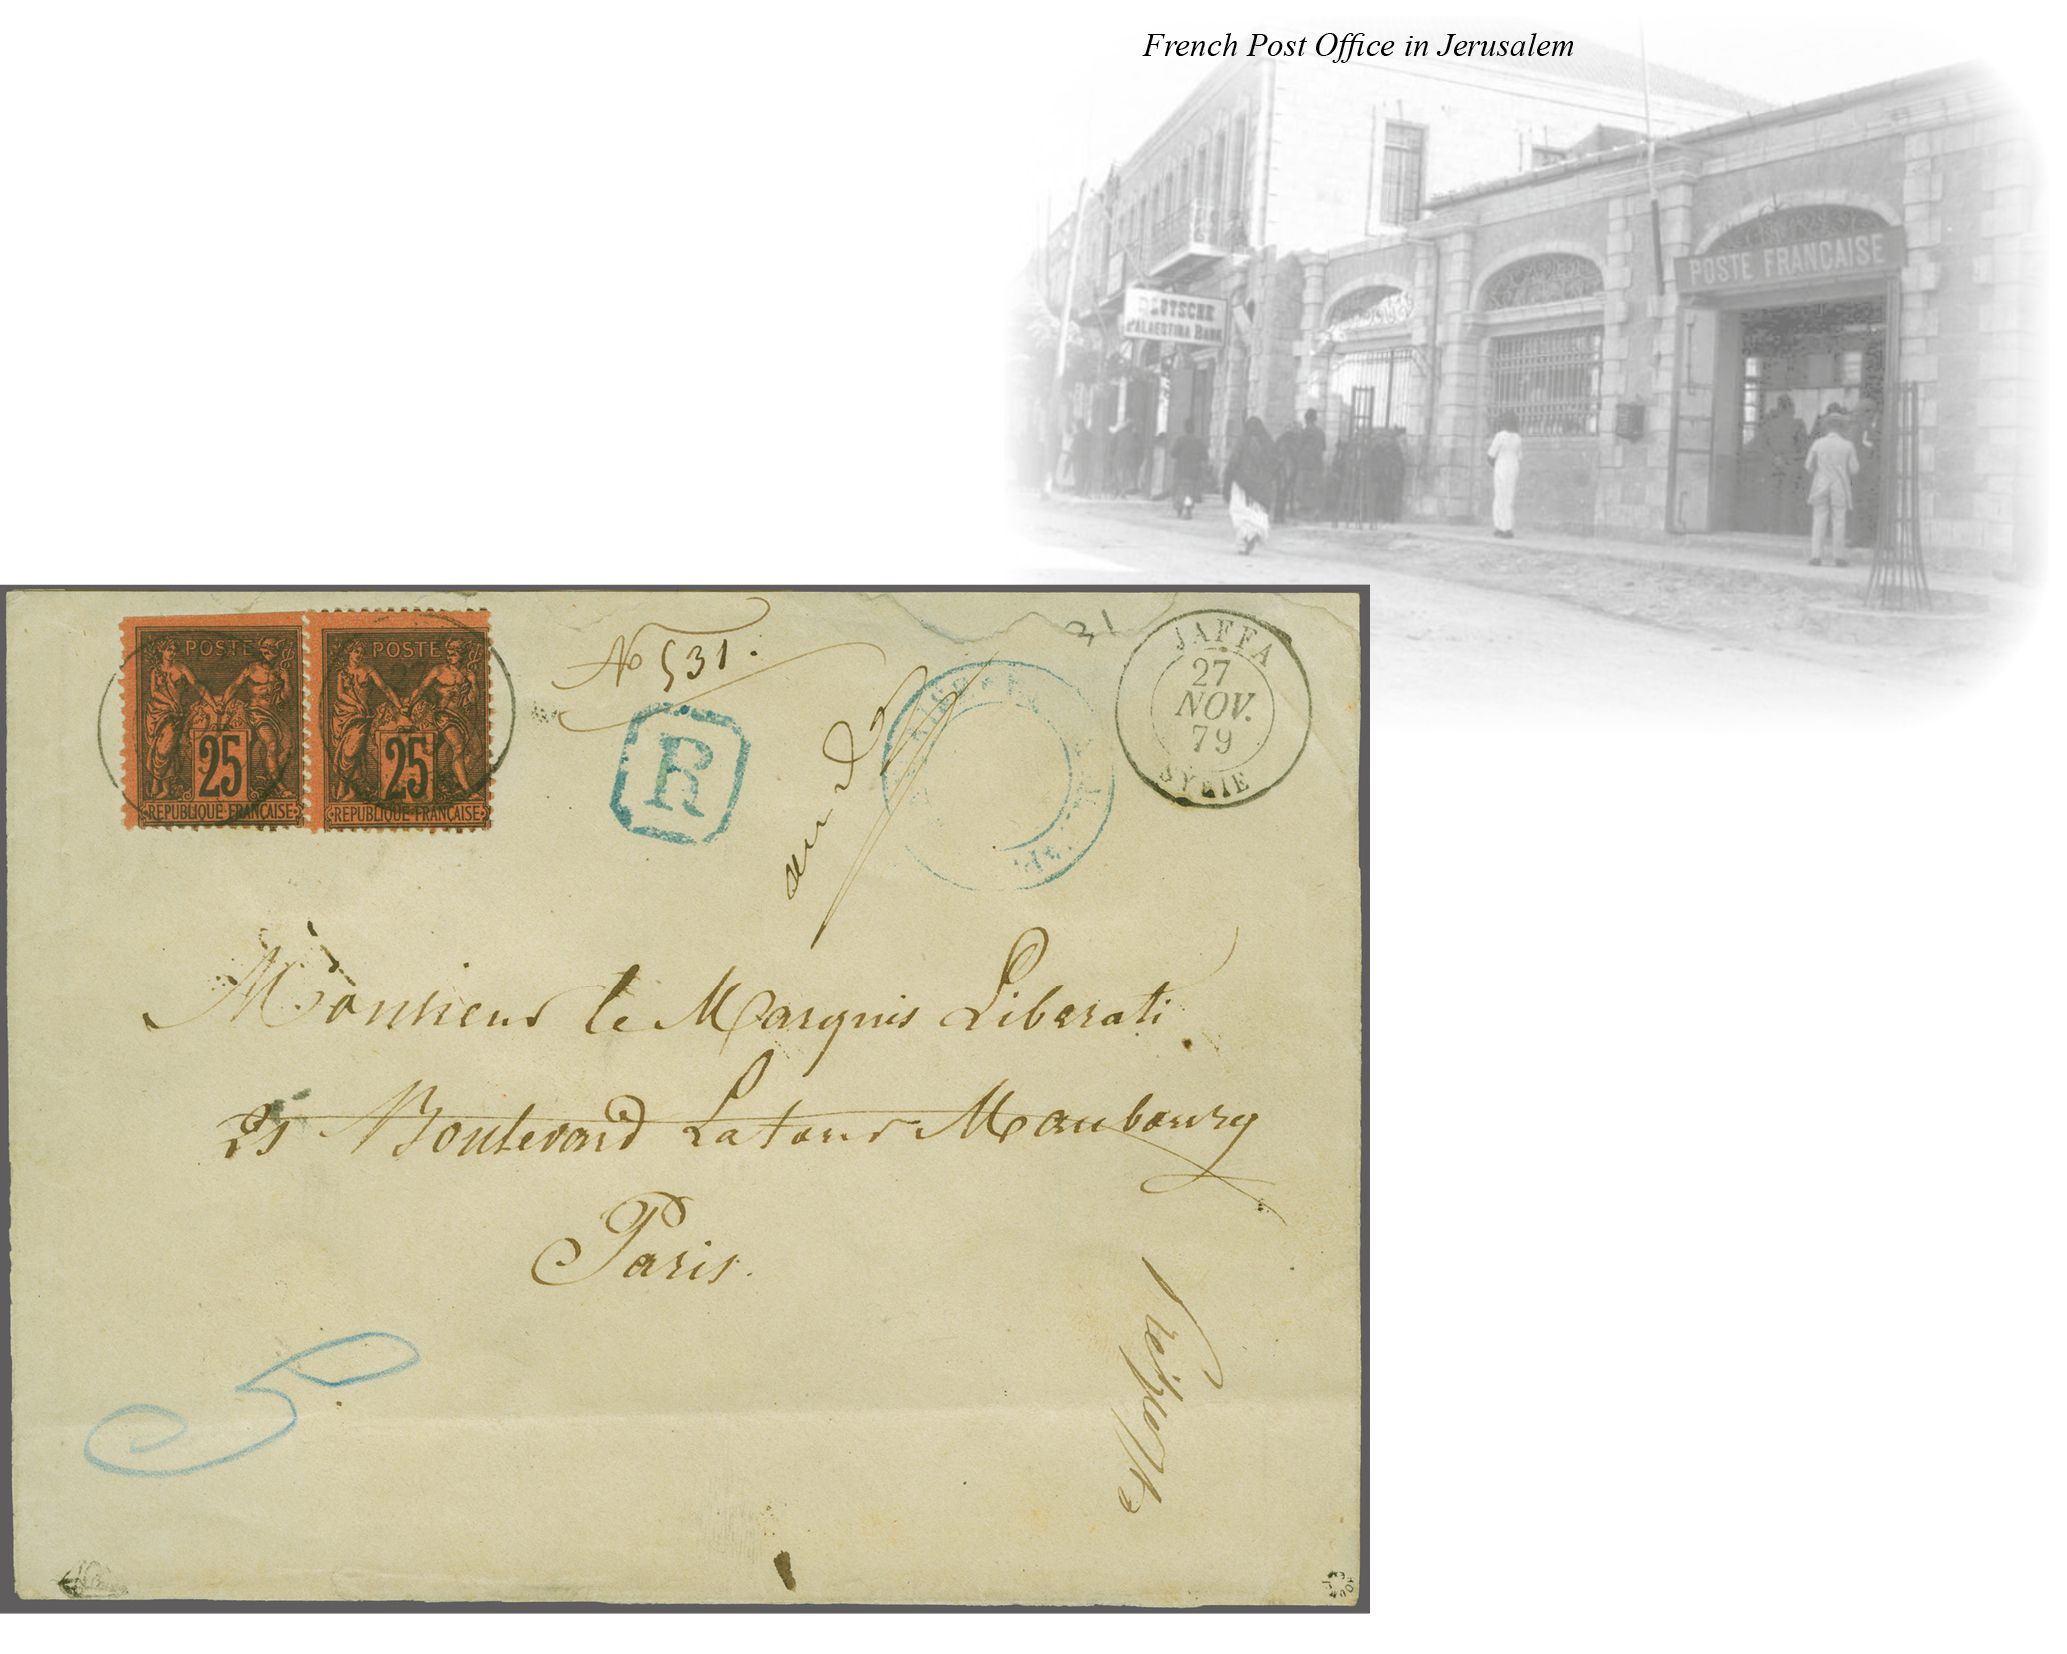 French Post Office in Jerusalem
POSTE FRANÇAISE
DEUTSCHE
PALAESTINA BANK
POSTE
25
RÉPUBLIQUE FRANÇAISE
POSTE
25
RÉPUBLIQUE FRANÇAISE
No 531.
31
R
JAFFA
27
NOV.
79
SYRIE
Monsieur le Marquis Liberati
21 Boulevard Latour Maubourg
Paris.
5